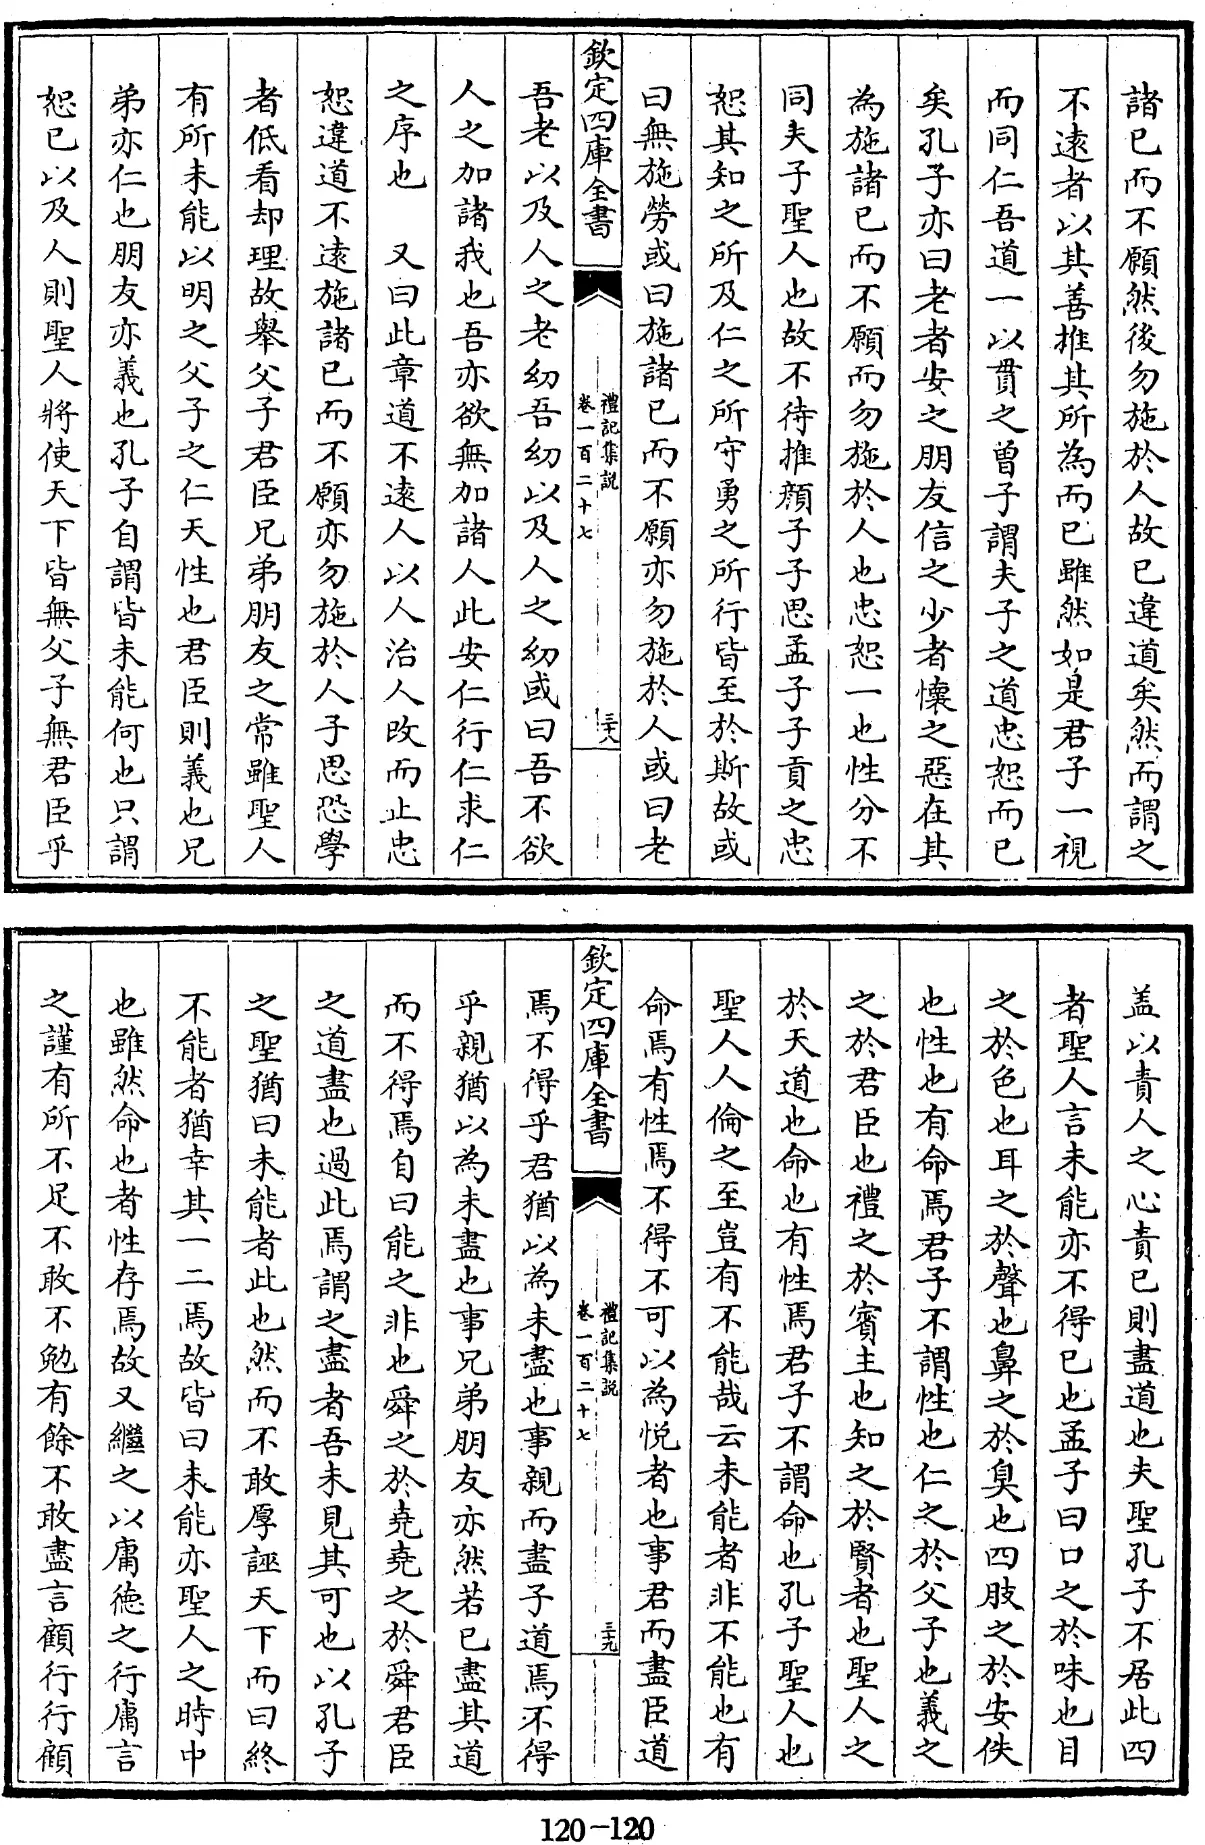 諸已而不願然後勿施於人故已違道矣然而謂之
不逺者以其善推其所為而已雖然如是君子一視
而同仁吾道一以貫之曾子謂夫子之道忠恕而已
矣孔子亦曰老者安之朋友信之少者懷之惡在其
為施諸已而不願而勿施於人也忠恕一也性分不
同夫子聖人也故不待推顔子子思孟子子貢之忠
恕其知之所及仁之所守勇之所行皆至於斯故或
曰無施勞或曰施諸已而不願亦勿施於人或曰老
欽定四庫全書
禮記集説
卷一百二十七
三十八
吾老以及人之老幼吾幼以及人之幼或曰吾不欲
人之加諸我也吾亦欲無加諸人此安仁行仁求仁
之序也 又曰此章道不逺人以人治人改而止忠
恕違道不逺施諸已而不願亦勿施於人子思恐學
者低看却理故舉父子君臣兄弟朋友之常雖聖人
有所未能以明之父子之仁天性也君臣則義也兄
弟亦仁也朋友亦義也孔子自謂皆未能何也只謂
恕已以及人則聖人將使天下皆無父子無君臣乎
盖以責人之心責已則盡道也夫聖孔子不居此四
者聖人言未能亦不得已也孟子曰口之於味也目
之於色也耳之於聲也鼻之於臭也四肢之於安佚
也性也有命焉君子不謂性也仁之於父子也義之
之於君臣也禮之於賓主也知之於賢者也聖人之
於天道也命也有性焉君子不謂命也孔子聖人也
聖人人倫之至豈有不能哉云未能者非不能也有
命焉有性焉不得不可以為悦者也事君而盡臣道
欽定四庫全書
禮記集説
卷一百二十七
三十九
焉不得乎君猶以為未盡也事親而盡子道焉不得
乎親猶以為未盡也事兄弟朋友亦然若已盡其道
而不得焉自曰能之非也舜之於堯堯之於舜君臣
之道盡也過此焉謂之盡者吾未見其可也以孔子
之聖猶曰未能者此也然而不敢厚誣天下而曰終
不能者猶幸其一二焉故皆曰未能亦聖人之時中
也雖然命也者性存焉故又繼之以庸徳之行庸言
之謹有所不足不敢不勉有餘不敢盡言顧行行顧
120-120